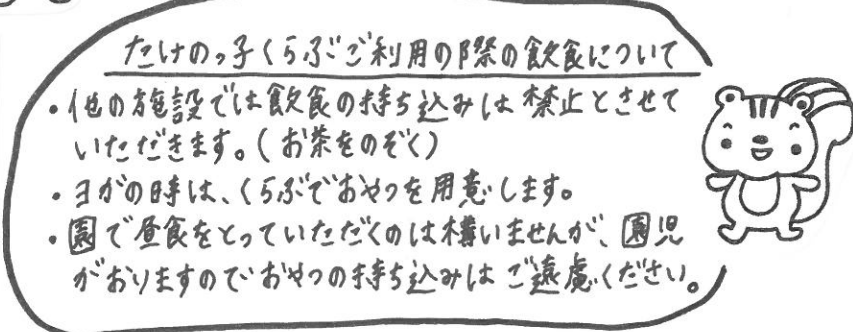 たけのっ子くらぶご利用の際の飲食について
・他の施設では飲食の持ち込みは禁止とさせて
いただきます。(お茶をのぞく)
・ヨガの時は、くらぶでおやつを用意します。
・園で昼食をとっていただくのは構いませんが、園児
がおりますのでおやつの持ち込みはご遠慮ください。